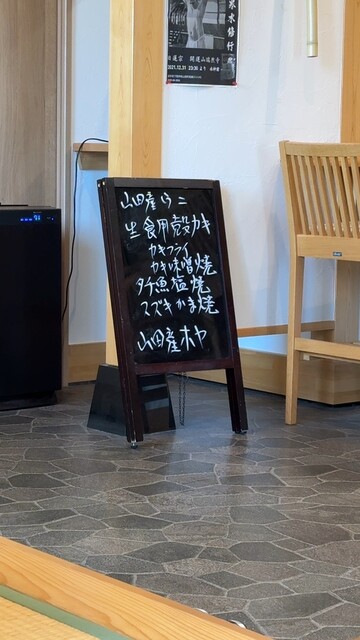 寒水修行
日蓮宗 開運山瑞泉寺
2021.12.31 23:30より
山田産ウニ
生食用殻カキ
カキフライ
カキ味噌焼
タチ魚塩焼
スズキかま焼
山田産ホヤ